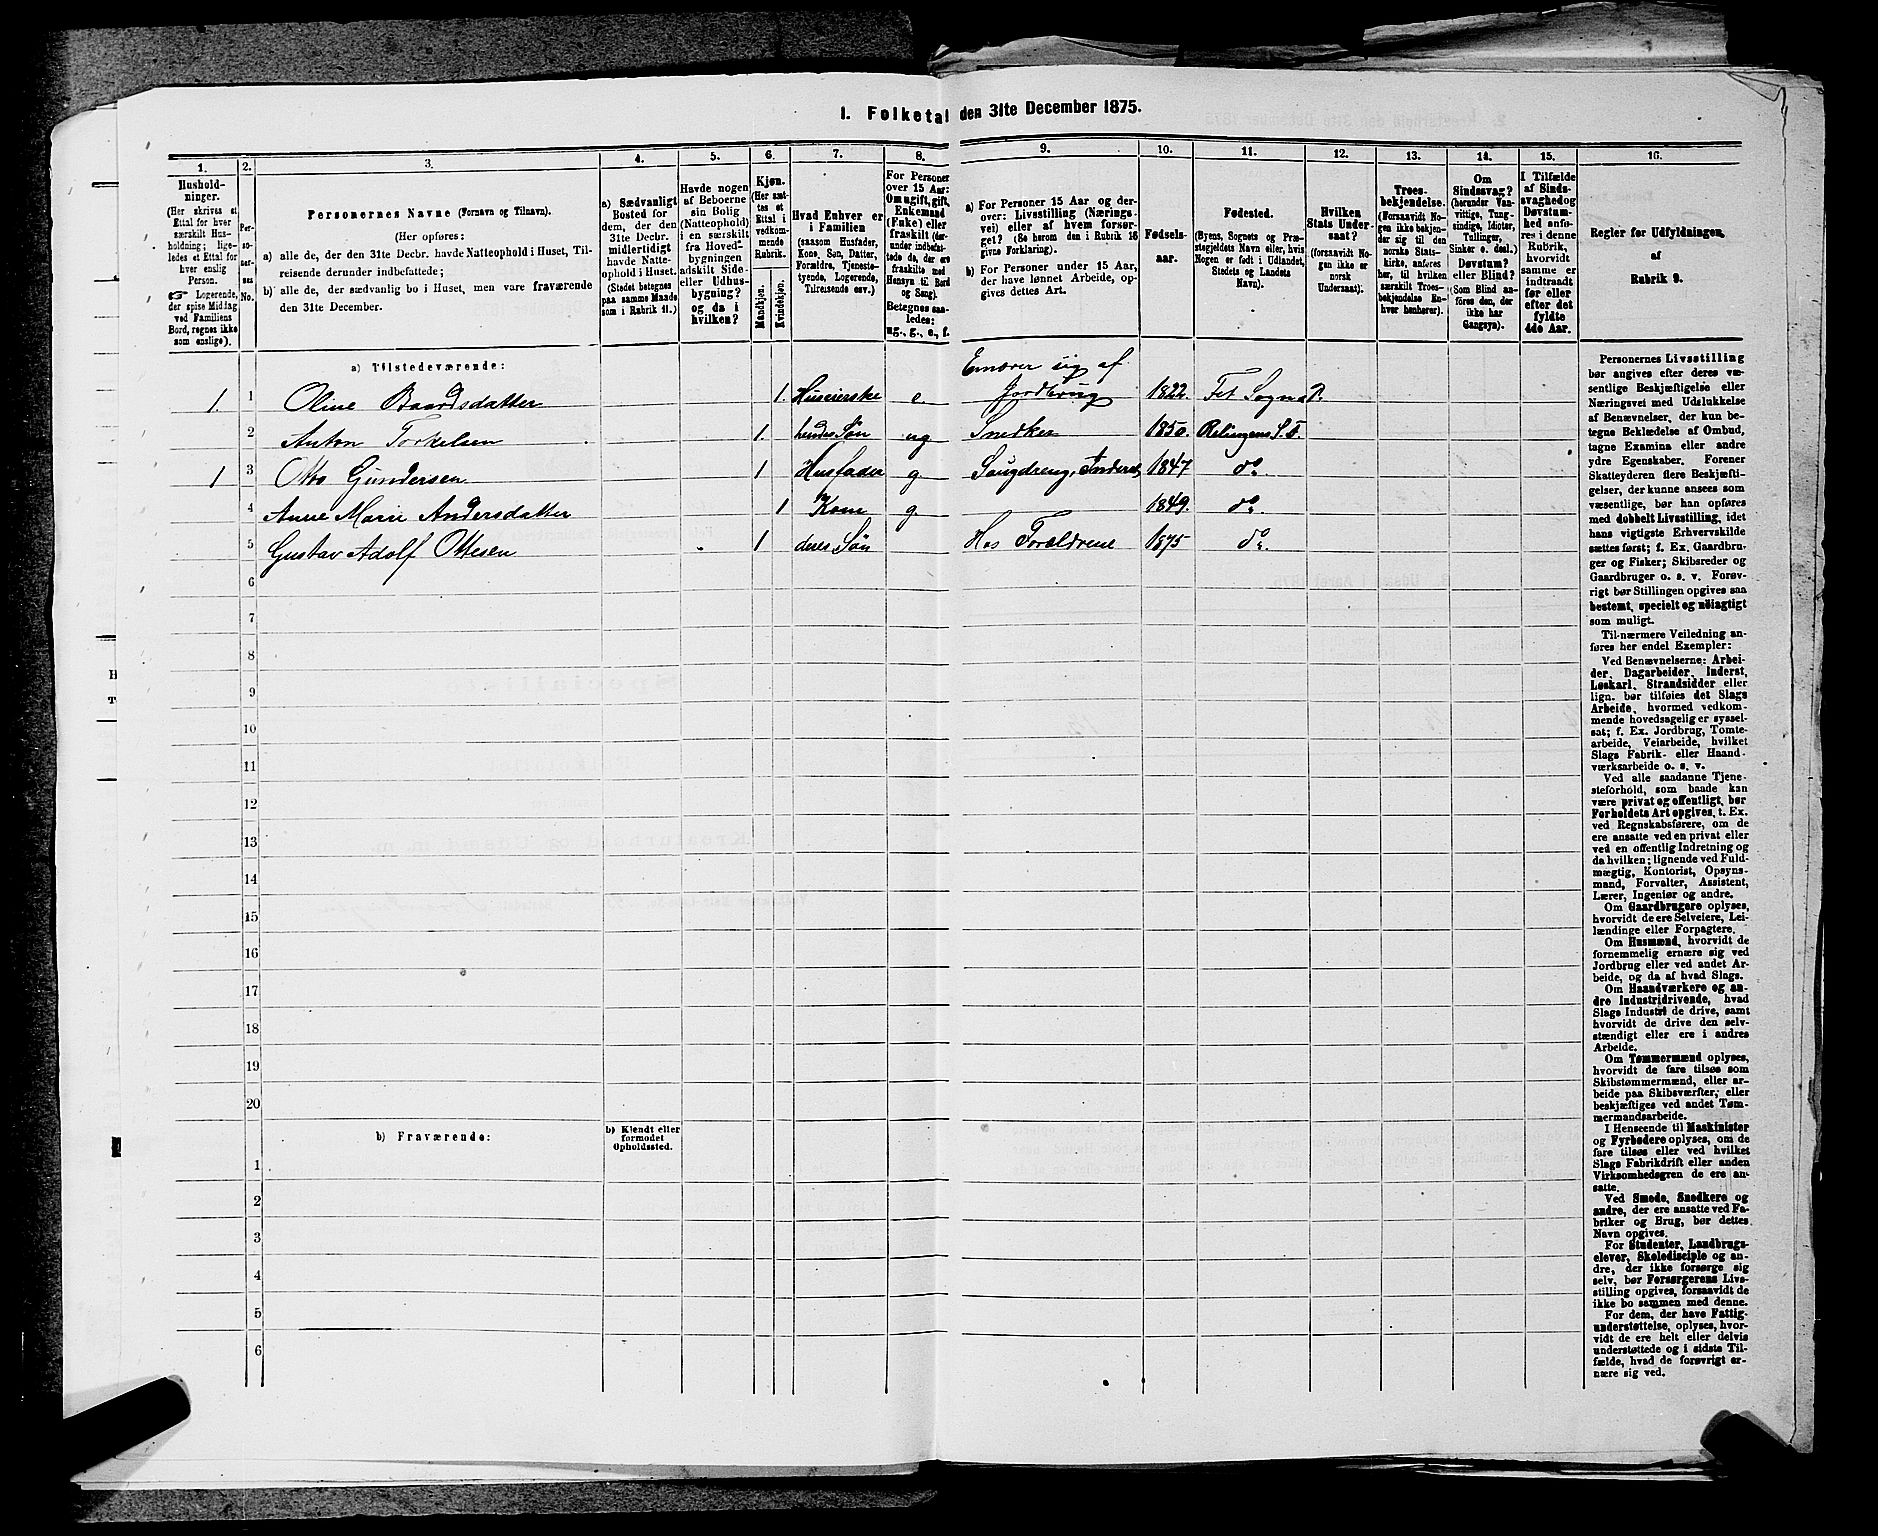 1. Folketal den 31te December 1875.
1.
2.
3.
4.
5.
6.
7.
8.
9.
10.
11.
12.
13.
14.
15.
16.
Hushold-
ninger.
(Her skrives et
Ettal for hver
særskilt Hus-
holdning; lige-
ledes et Ettal for
hver enslig
Person.
☞ Logerende,
der spise Middag
ved Familiens
Bord, regnes ikke
som enslige).
Per-
so-
ner-
nes
No.
Personernes Navne (Fornavn og Tilnavn).
(Her opføres:
a) alle de, der den 31te Decbr. havde Natteophold i Huset, Til-
reisende derunder indbefattede;
b) alle de, der sædvanlig bo i Huset, men vare fraværende
den 31te December.
a) Sædvanligt
Bosted for
dem, der den
31te Decbr.
havde Natte-
ophold i Huset.
(Stedet betegnes
paa samme Maade
som i Rubrik 11.)
Havde nogen
af Beboerne
sin Bolig
(Natteophold)
i en særskilt
fra Hoved-
bygningen
adskilt Side-
eller Udhus-
bygning?
og da i
hvilken?
Kjøn.
(Her sæt-
tes et
Ettal i
vedkom-
mende
Rubrik.
Mandkjøn.
Kvindekjøn.
Hvad Enhver er
i Familien
(saasom Husfader,
Kone, Søn, Datter,
Forældre, Tjeneste-
tyende, Logerende,
Tilreisende osv.)
For Personer
over 15 Aar:
Om ugift, gift,
Enkemand
(Enke) eller
fraskilt (der-
under indbefat-
tede de, der ere
fraskilte med
Hensyn til Bord
og Seng).
Betegnes saa-
ledes:
ug., g., e., f.
a) For Personer 15 Aar og der-
over: Livsstilling (Nærings-
vei) eller af hvem forsør-
get? (Se herom den i Rubrik 16
givne Forklaring).
b) For Personer under 15 Aar,
der have lønnet Arbeide, op-
gives dettes Art.
Fødsels-
aar.
Fødested.
(Byens, Sognets og Præ-
stegjeldets Navn eller, hvis
Nogen er født i Udlandet,
Stedets og Landets
Navn).
Hvilken
Stats Under-
saat?
(forsaavidt No-
gen ikke er
norsk
Undersaat).
Troes-
bekjendelse.
(Forsaavidt No-
gen ikke bekjen-
der sig til den
norske Stats-
kirke, anføres
her, til hvilken
særskilt Troes-
bekjendelse En-
hver henhører).
Om
Sindssvag?
(herunder Van-
vittige, Tung-
sindige, Idioter,
Tullinger,
Sinker o. desl.)
Døvstum?
eller Blind?
(Som Blind an-
føres den, der
ikke har
Gangsyn).
I Tilfælde
af Sinds-
svaghed og
Døvstum-
hed anfø-
res i denne
Rubrik,
hvorvidt
samme er
indtraadt
før eller
efter det
fyldte
4de Aar.
Regler for Udfyldningen
af
Rubrik 9.
a) Tilstedeværende:
Ernærer sig af
1. 1 Oline Baardsdatter 1. Huseierske e. Jordbrug 1822. Fet Sogn P.
2 Anton Torkelsen 1. hendes Søn ug Snedker 1850. Relingens S. F.
1 3 Otto Gundersen 1 Husfader g. Saugdreng, Inderst 1847 do.
4 Anne Marie Andersdatter 1 Kone g. 1849. do.
5 Gustav Adolf Ottesen 1 deres Søn Hos Forældrene 1875 do.
6
7
8
9
10
11
12
13
14
15
16
17
18
19
20
b) Fraværende:
b) Kjendt eller
formodet
Opholdssted.
1
2
3
4
5
6
Personernes Livsstilling
bør angives efter deres væ-
sentlige Beskjæftigelse eller
Næringsvei med Udslukkelse
af Benævnelser, der kun be-
tegne Beklædelse af Ombud,
tagne Examina eller andre
ydre Egenskaber. Forener
Skatteyderen flere Beskjæfti-
gelser, der kunne ansees som
væsentlige, bør han opføres
med dobbelt Livsstilling, idet
hans vigtigste Erhvervskilde
sættes først; f. Ex. Gaardbru-
ger og Fisker; Skibsreder og
Gaardbruger o. s. v. Forøv-
rigt bør Stillingen opgives saa
bestemt, specielt og nöiagtigt
som muligt.
Til-nærmere Veiledning an-
føres her endel Exempler:
Ved Benævnelserne: Arbei-
der, Dagarbeider, Inderst,
Løskarl, Strandsidder eller
lign. bør tilføies det Slags
Arbeide, hvormed vedkom-
mende hovedsagelig er syssel-
sat; f. Ex. Jordbrug, Tomte-
arbeide, Veiarbeide, hvilket
Slags Fabrik- eller Haand-
værksarbeide o. s. v.
Ved alle saadanne Tjene-
steforhold, som baade kan
være privat og offentligt, bør
Forholdets Art opgives, t. Ex.
ved Regnskabsførere, om de
ere ansatte ved en privat eller
ved en offentlig Indretning og
da hvilken; lignende ved Fuld-
mægtig, Kontorist, Opsyns-
mand, Forvalter, Assistent,
Lærer, Ingeniør og andre.
Om Gaardbrugere oplyses,
hvorvidt de ere Selveiere, Lei-
lændinge eller Forpagtere.
Om Husmænd, hvorvidt de
fornemmelig ernære sig ved
Jordbrug eller ved andet Ar-
beide, og da af hvad Slags.
Om Haandværkere og an-
dre Industridrivende, hvad
Slags Industri de drive, samt
hvorvidt de drive den selv-
stændigt eller ere i andres
Arbeide.
Om Tømmermænd oplyses,
hvorvidt de fare tilsøs som
Skibstømmermænd, eller ar-
beide paa Skibsværfter, eller
beskjæftiges ved andet Tøm-
mermandsarbeide.
I Henseende til Maskinister
og Fyrbødere oplyses, om de
fare tilsøs eller ved hvilket
Slags Fabrikdrift eller anden
Virksomhedsgren de ere an-
satte.
Ved Smede, Snedkere og
andre, der ere ansatte ved Fa-
briker og Brug, bør dettes
Navn opgives.
For Studenter, Landbrugs-
elever, Skoledisciple og an-
dre, der ikke forsørge sig
selv, bør Forsørgerens Livs-
stilling opgives, forsaavidt de
ikke bo sammen med denne.
For dem, der have Fattig-
understøttelse, oplyses, hvor-
vidt de ere helt eller delvis
understøttede og i sidste Til-
fælde, hvad de forøvrigt er-
nære sig ved.